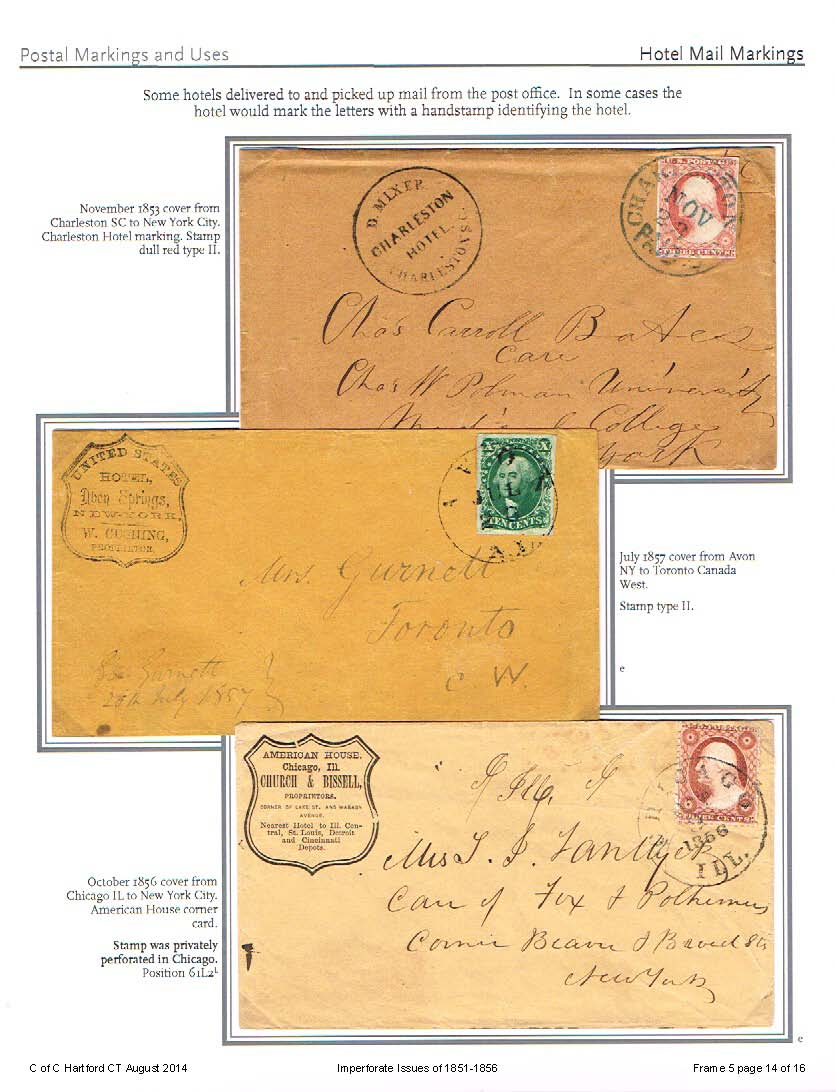 Postal Markings and Uses
Hotel Mail Markings
Some hotels delivered to and picked up mail from the post office. In some cases the
hotel would mark the letters with a handstamp identifying the hotel.
November 1853 cover from
Charleston SC to New York City.
Charleston Hotel marking. Stamp
dull red type II.
D. MIXER
CHARLESTON
HOTEL
CHARLESTON S.C.
U.S. POSTAGE
CHARLESTON
NOV
THREE CENTS
Chas Carroll Bates
Care
Chas W Polman University
College
York
UNITED STATES
HOTEL,
Avon Springs,
NEW-YORK.
W. CUSHING,
PROPRIETOR.
X X
AVON
JUL
TEN CENTS
N.Y.
Mrs. Gurnett
Toronto
C. W.
Gurnett
20th July 1857
July 1857 cover from Avon
NY to Toronto Canada
West.
Stamp type II.
e
AMERICAN HOUSE.
Chicago, Ill.
CHURCH & BISSELL,
PROPRIETORS.
CORNER OF LAKE ST. AND WABASH
AVENUE.
Nearest Hotel to Ill. Cen-
tral, St. Louis, Detroit
and Cincinnati
Depots.
CHICAGO
THREE CENTS
1856
ILL.
Mrs
Care of Fox & Polhemus
Corner Beaver & Broad Sts
New York
October 1856 cover from
Chicago IL to New York City.
American House corner
card.
Stamp was privately
perforated in Chicago.
Position 61L2ᴸ
e
C of C Hartford CT August 2014
Imperforate Issues of 1851-1856
Frame 5 page 14 of 16